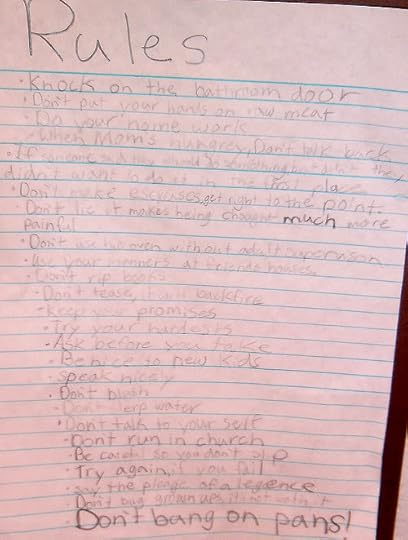 Rules
• Knock on the bathroom door
• Don't put your hands on raw meat
• Do your home work
• When Mom's hungrey, Don't talk back
• If someone said they would do something but didn't they
didn't want to do it in the first place
• Don't make escuses, get right to the point.
• Don't lie it makes being cought much more
painful
• Don't use without adult
• Use your manners at friends houses.
• Don't rip books
• Don't tease, it will backfire
• Keep your promises
• Try your hardests
• Ask before you take
• Be nice to new kids
• speak nicely
• Don't
• Don't water
• Don't talk to your self
• Don't run in church
• Be careful so you don't slip
• Try again, if you fail
• say the pledge of alegence
• Don't bug grown ups it's not worth it
• Don't bang on pans!